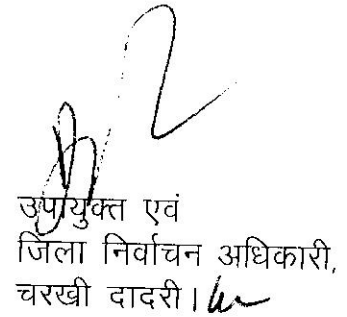 उपायुक्त एवं
जिला निर्वाचन अधिकारी,
चरखी दादरी।